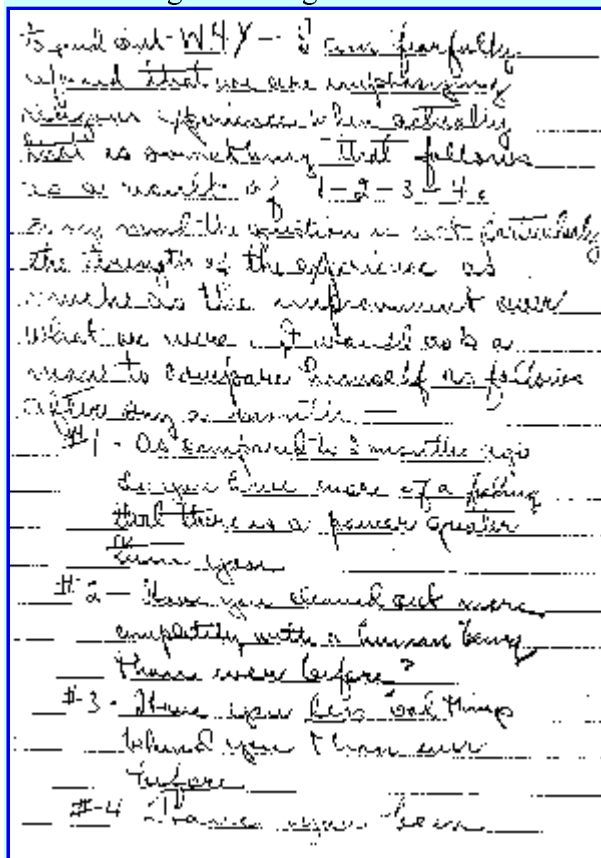 to find out - WHY - I am fearfully
afraid that we are emphasizing
religious experience when actually
that is something that follows
as a result of 1-2-3-4.
In my mind the question is not particularly
the strength of the experience as
much as the improvement over
what we were. I would ask a
man to compare himself as follows
after say a month —
#1 - As compared to 2 months ago
Do you have more of a feeling
that there is a power greater
than you
#2 - Have you cleaned out more
completely with a human being
than ever before?
#3 - Have you less bad things
behind you than ever
before
#-4 Have you been